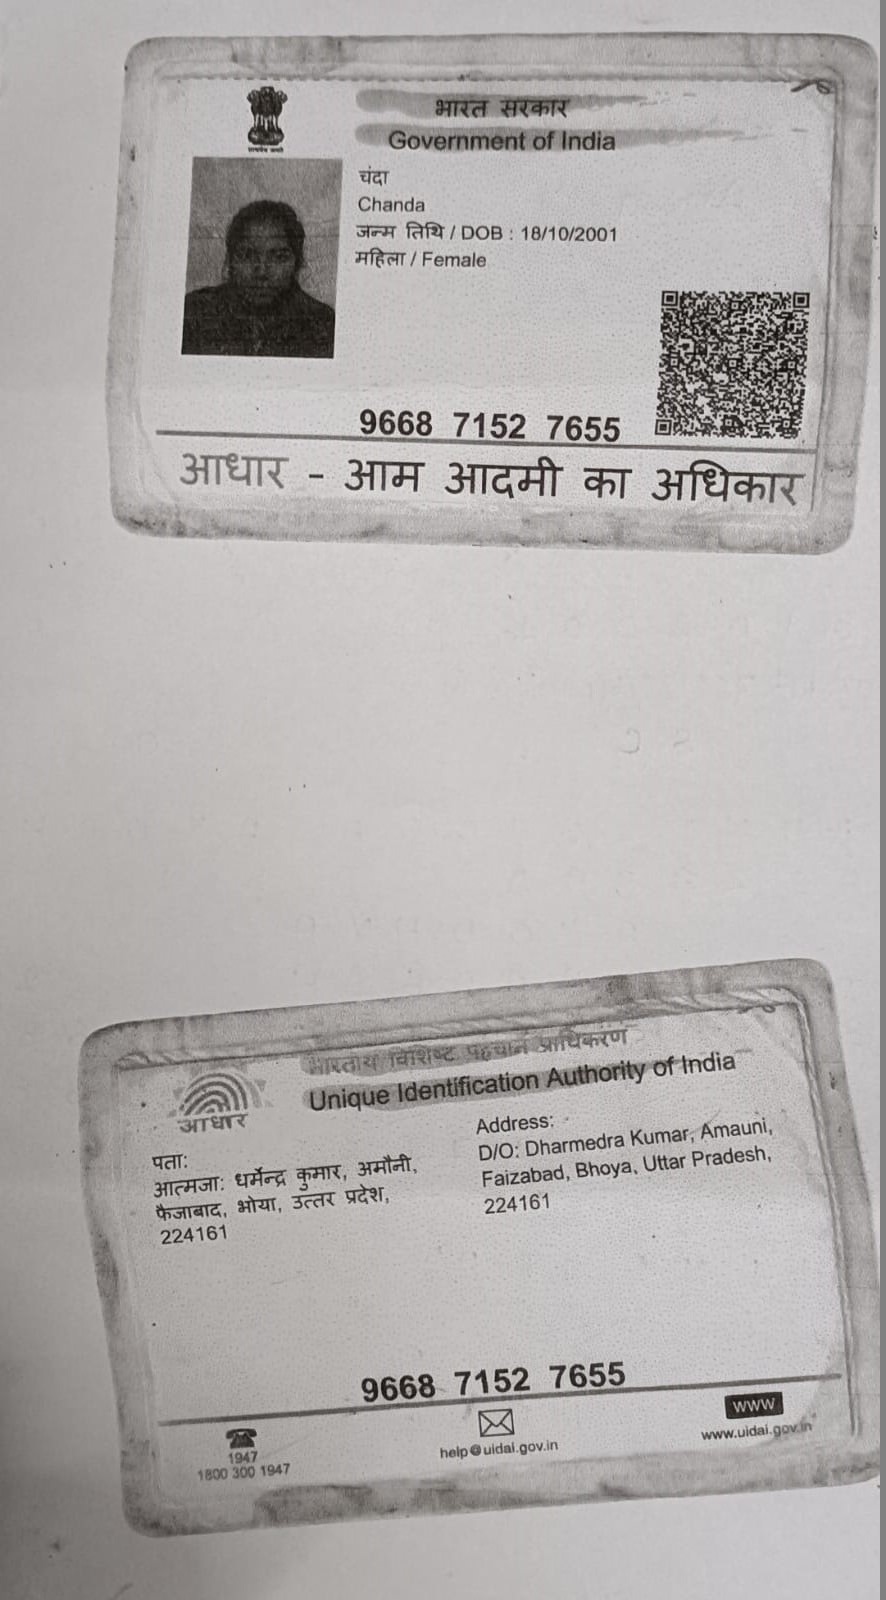 भारत सरकार
Government of India
चंदा
Chanda
जन्म तिथि / DOB : 18/10/2001
महिला / Female
9668 7152 7655
आधार - आम आदमी का अधिकार
भारतीय विशिष्ट पहचान प्राधिकरण
Unique Identification Authority of India
आधार
पता:
आत्मजा: धर्मेन्द्र कुमार, अमौनी,
फैजाबाद, भोया, उत्तर प्रदेश,
224161
Address:
D/O: Dharmedra Kumar, Amauni,
Faizabad, Bhoya, Uttar Pradesh,
224161
9668 7152 7655
1947
1800 300 1947
help@uidai.gov.in
www
www.uidai.gov.in